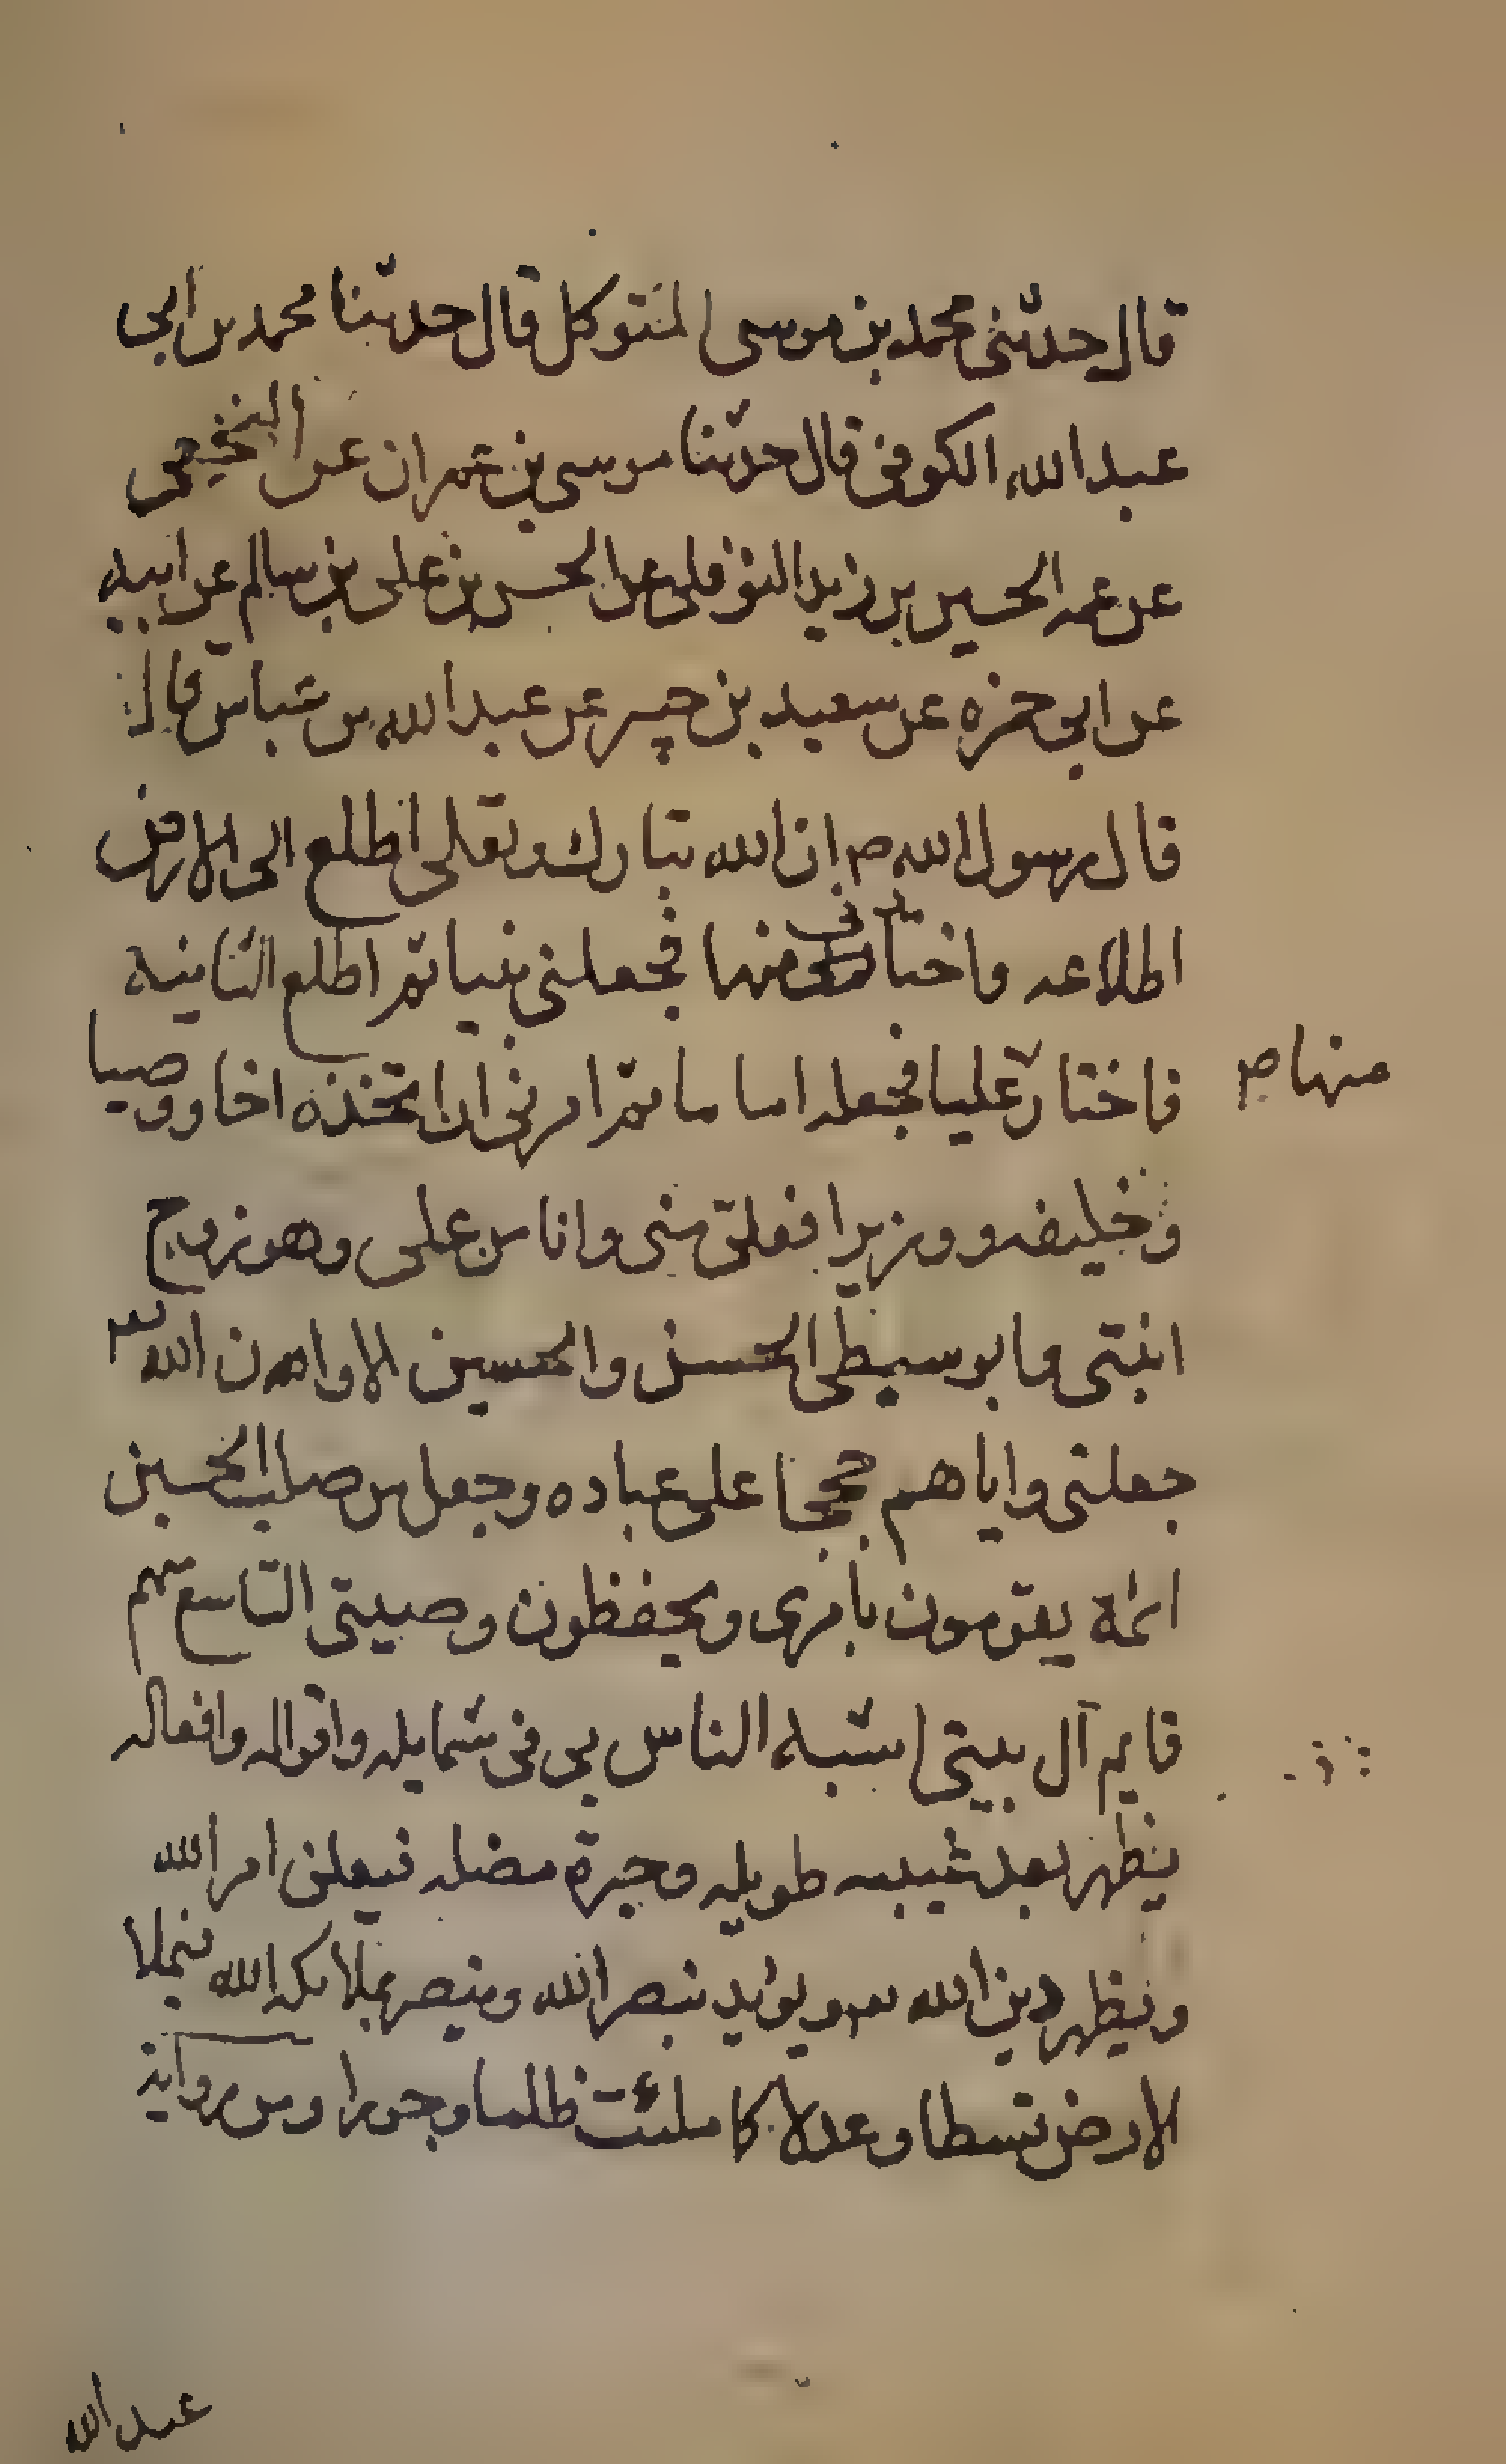 قال حدثني محمد بن موسى المتوكل قال حدثنا محمد بن ابى
عبد الله الكوفى قال حدثنا موسى بن عمران عن النخعى
عن عمه الحسين بن زيد النوفلى عن الحسن بن على بن سالم عن ابيه
عن ابى حمزه عن سعيد بن جبير عن عبد الله بن عباس قال
قال رسول الله ص ان الله تبارك وتعلى اطلع الى الارض
اطلاعه واختارنى منها فجعلنى نبيا ثم اطلع الثانيه
منها ص
فاختار عليا فجعله اماما ثم امرنى ان اتخذه اخا ووصيا
وخليفه ووزيرا فعلى منى وانا من على وهو زوج
ابنتى وابو سبطى الحسن والحسين الا وان الله
جعلنى واياهم حججا على عباده وجعل من صلب الحسين
ائمة يقومون بأمرى ويحفظون وصيتى التاسع منهم
قايم آل بيتى اشبه الناس بى فى شمايله واقواله وافعاله
يظهر بعد غيبه طويله وحيرة مضله فيعلن امر الله
ويظهر دين الله ويؤيد بنصر الله وينصر بملائكه الله فيملا
الارض قسطا وعدلا كما ملئت ظلما وجورا ومن رواية
عبد الله